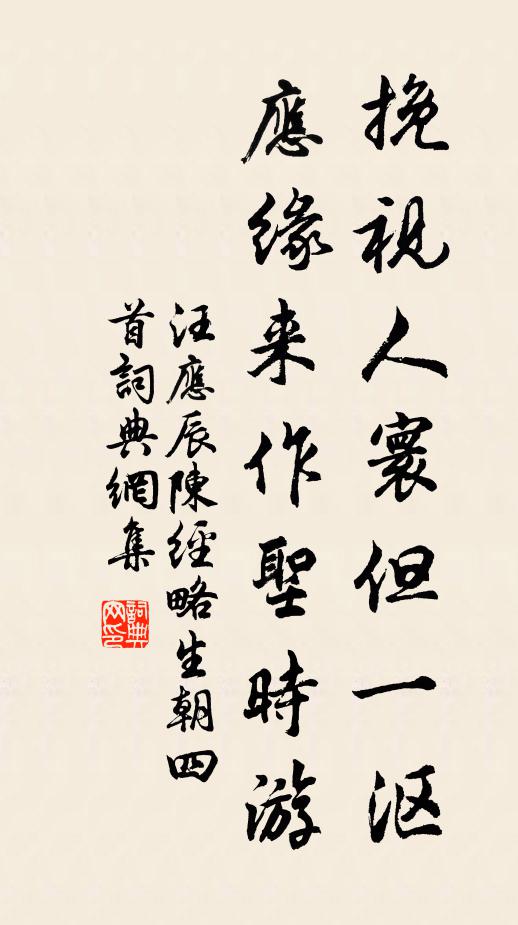 挽視人寰但一漚
應緣来作聖時游
汪應辰陳經略生朝四
首詞典網集
詞典網印